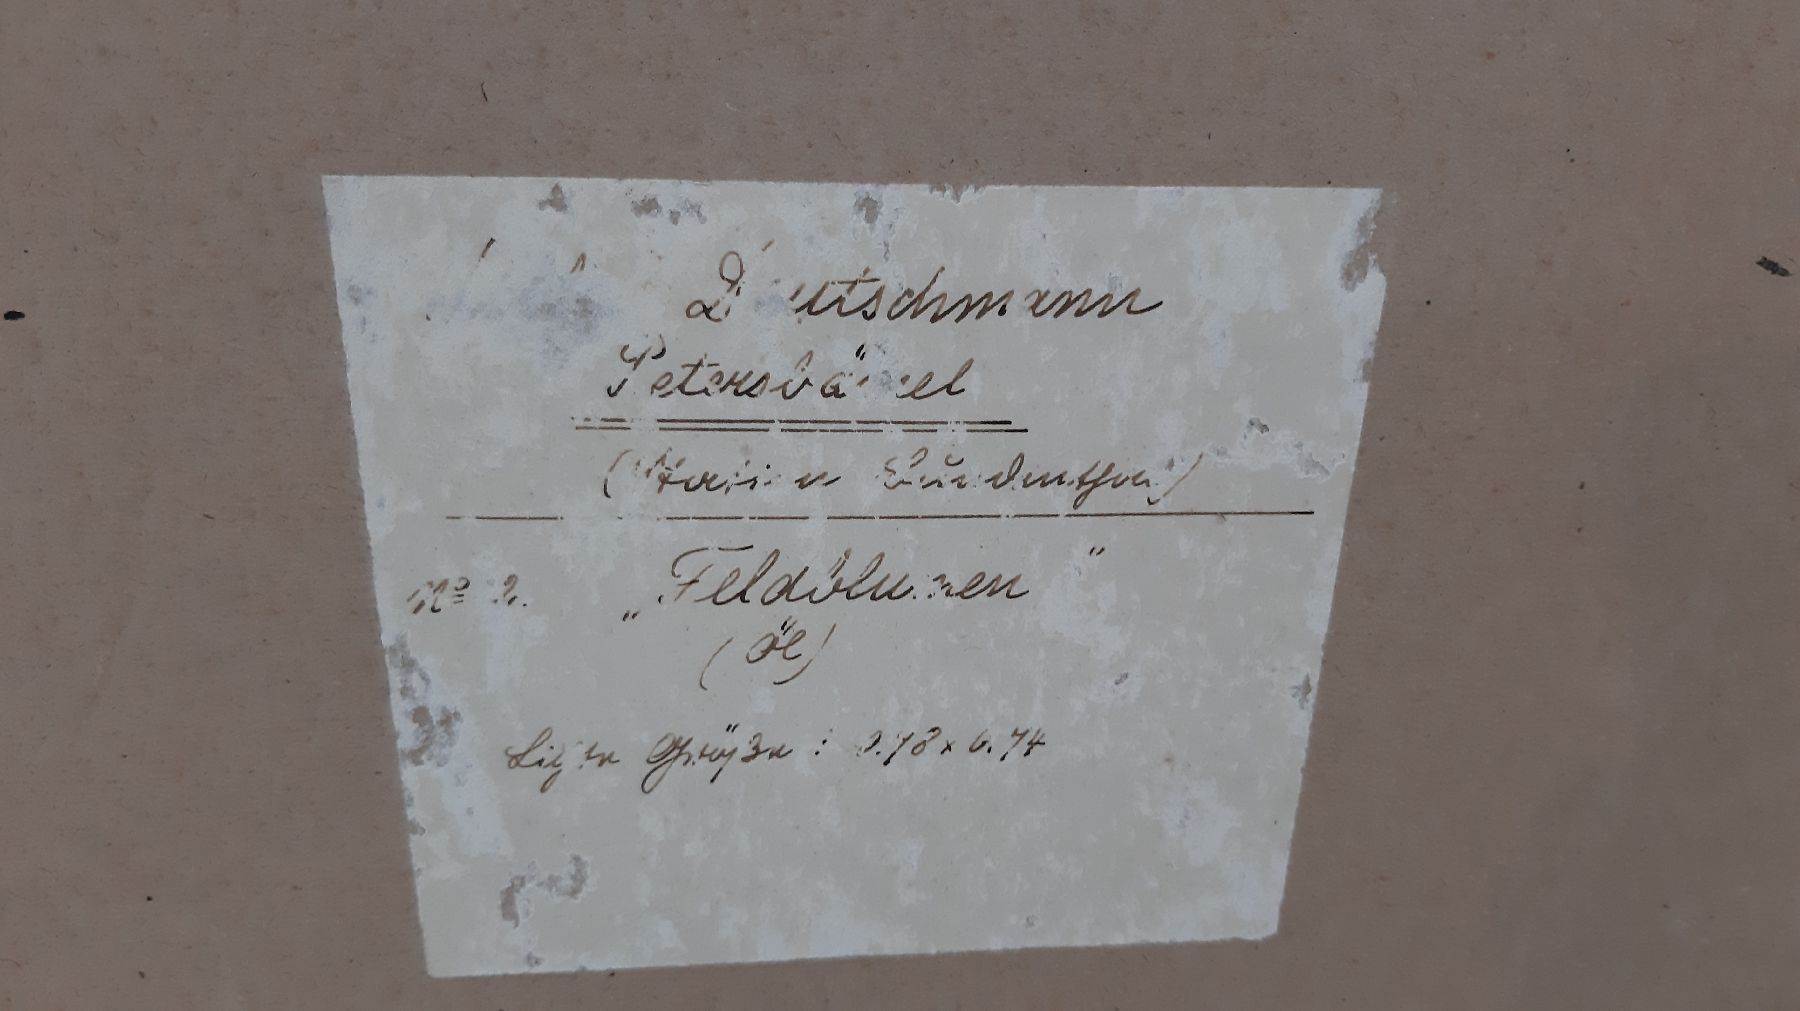 Deutschmann
Petersbärel
(Station
Nº 2. „Feldblumen"
(Öl)
Lichte Größe : 0.78 x 0.74